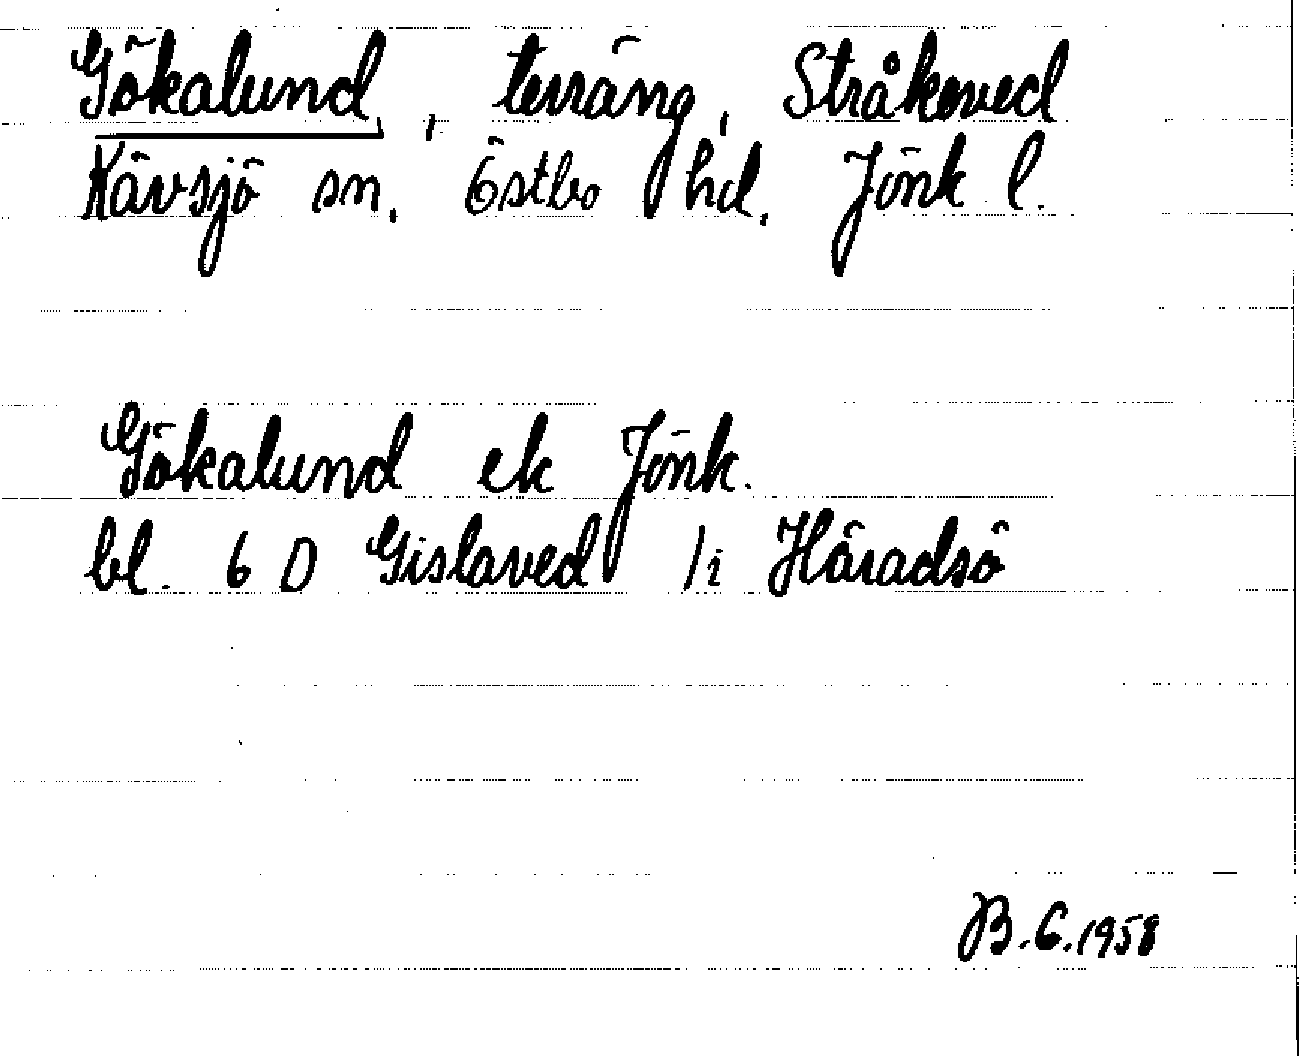 Gökalund, terräng, Stråkeved
Kävsjö sn. Östbo hd. Jönk l.
Gökalund ek Jönk.
bl. 6 D Gislaved /i Häradsö
B.G.1958